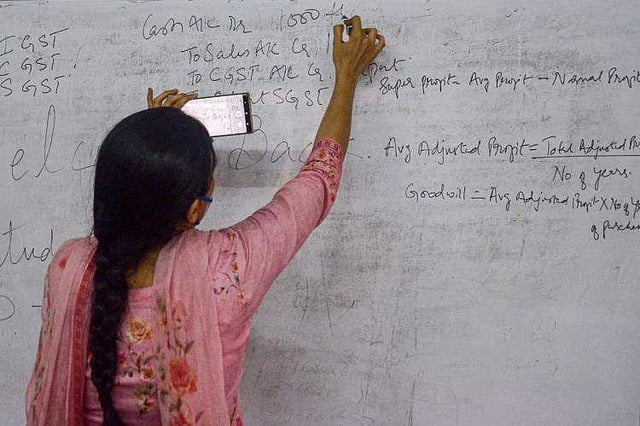 IGST
CGST
SGST
Cash A/c Dr 1000
To Sales A/c Cr
To CGST A/c Cr
SGST
Super Profit = Avg Profit - Normal Profit
Welcome Back
Avg Adjusted Profit = Total Adjusted
No of years.
Goodwill = Avg Adjusted Profit X No of
of purchase
Stud